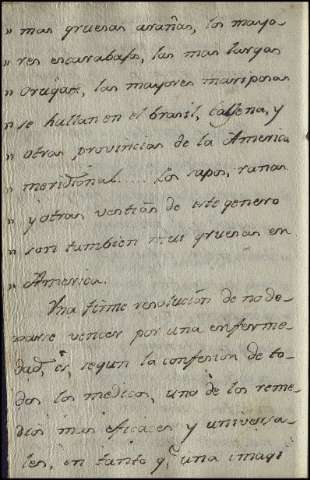 " mas gruesas arañas, los mayo-
" res escarabajos, las mas largas
" Orugas, las mayores mariposas
" se hallan en el brasil, Callena, y
" otras provincias de la America
" meridional..... Los sapos, ranas
" y otras vestias de este genero
" son tambien mui gruesas en
" America.
Una firme resolucion de no de-
xarse vencer por una enferme-
dad, es, segun la confesion de to-
dos los medicos, uno de los reme-
dios mas eficaces y universa-
les, en tanto q.e una imagi